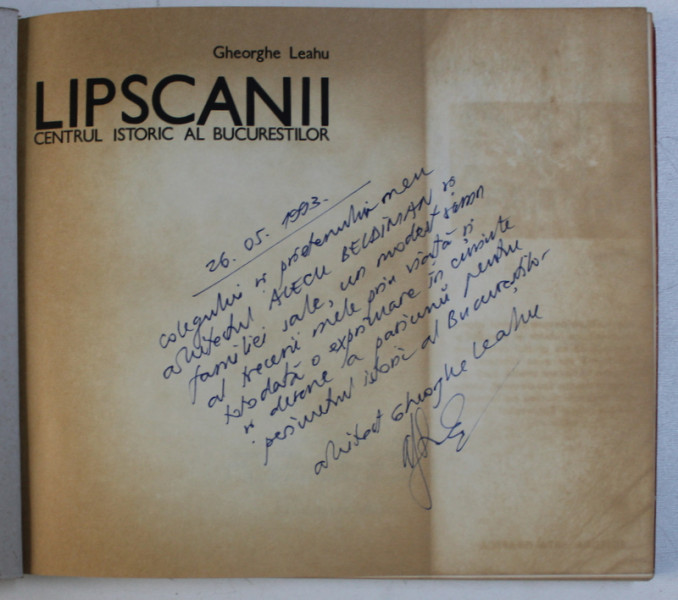 Gheorghe Leahu
LIPSCANII
CENTRUL ISTORIC AL BUCURESTILOR
26. 05. 1993.
colegului și prietenului meu
arhitectul ALECU BELDIMAN și
familiei sale, un modest semn
al trecerii mele prin viață și
totodată o exprimare în cuvinte
și desene a pasiunii pentru
perimetrul istoric al Bucureștilor
arhitect Gheorghe Leahu